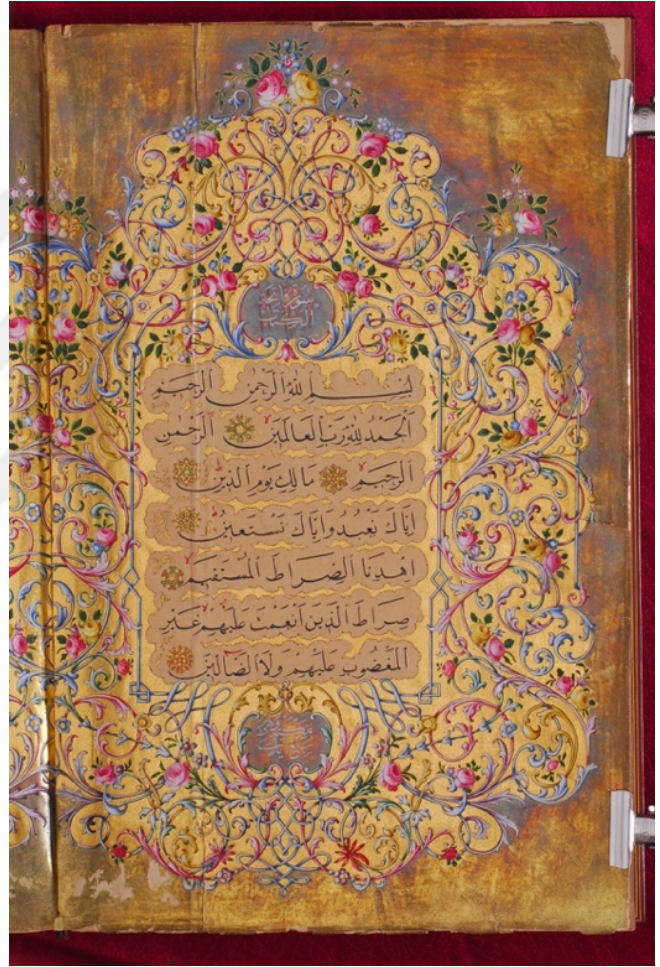 سورة فاتحة
الكتاب
بِسْمِ اللهِ الرَّحْمٰنِ الرَّحِيمِ
اَلْحَمْدُ لِلّٰهِ رَبِّ الْعَالَمِينَ اَلرَّحْمٰنِ
الرَّحِيمِ مَالِكِ يَوْمِ الدِّينِ
اِيَّاكَ نَعْبُدُ وَاِيَّاكَ نَسْتَعِينُ
اِهْدِنَا الصِّرَاطَ الْمُسْتَقِيمَ
صِرَاطَ الَّذِينَ اَنْعَمْتَ عَلَيْهِمْ غَيْرِ
الْمَغْضُوبِ عَلَيْهِمْ وَلَا الضَّالِّينَ